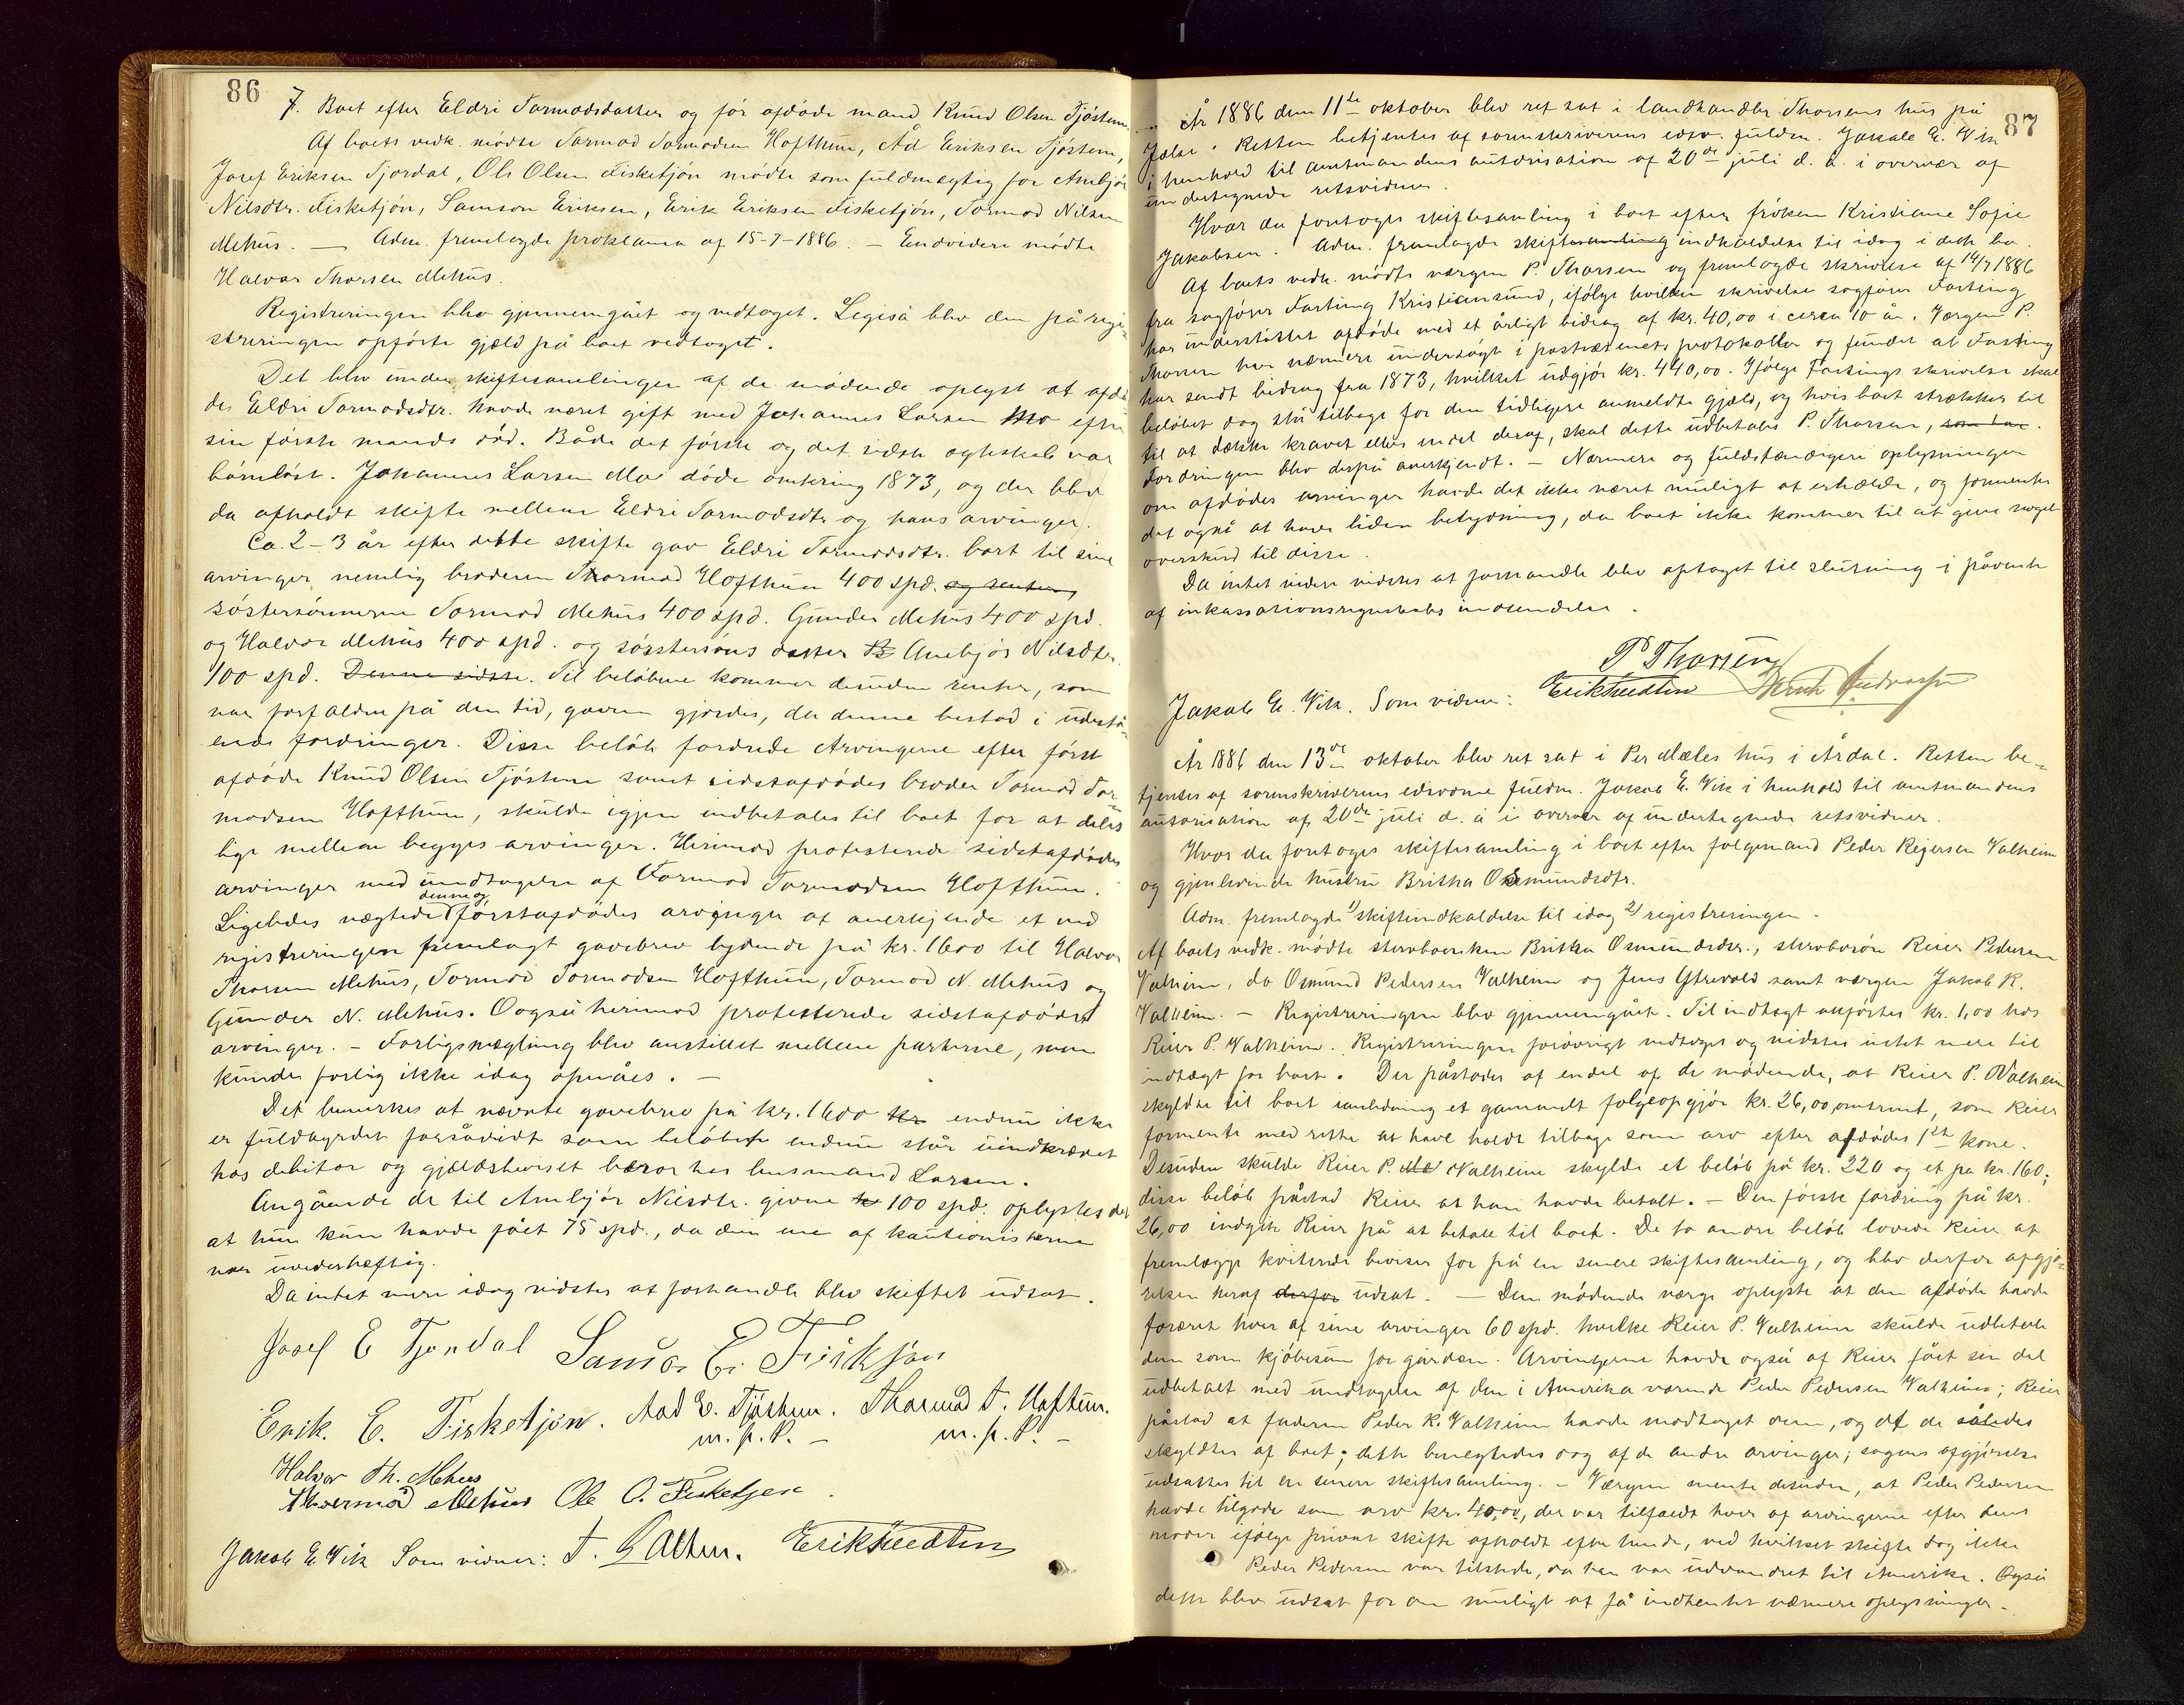 86
7. Boet efter Eldri Tarmodsdatter og før afdøde mand Knud Olsen Tjøstem.
Af boets vedk. mødte Tarmod Tarmodsen Hofthun, Åd Eriksen Tjøstem,
Josef Eriksen Tjordal, Ole Olsen Fisketjøn mødte som fuldmægtig for Anbjør
Nilsdtr. Fisketjøn, Samson Eriksen, Erik Eriksen Fisketjøn, Tormod Nilsen
Mehus. — Adm. fremlagde proklama af 15-7-1886. — Endvidere mødte
Halvor Thorsen Mehus.
Registreringen blev gjennemgået og vedtaget. Ligeså blev den på regi-
streringen opførte gjæld på boet vedtaget.
Det blev under skiftesamlingen af de mødende oplyst at afdø-
de Eldri Tarmodsdtr. havde været gift med Johannes Larsen Mo efter
sin første mands død. Både det første og det sidste ægteskab var
barnløst. Johannes Larsen Mo døde omkring 1873, og der blev
da afholdt skifte mellem Eldri Tarmodsdtr og hans arvinger.
Ca. 2-3 år efter dette skifte gav Eldri Tormodsdtr. bort til sine
arvinger nemlig broderen Thormod Hofthun 400 spd. og renter
søstersønnerne Tormod Mehus 400 spd. Gunder Mehus 400 spd.
og Halvor Mehus 400 spd. og søstersøns datter Anebjør Nilsdtr.
100 spd. Denne sidste. Til beløbene kommer desuden renter, som
var forfalden på den tid, gaven gjordes, da denne bestod i udestå-
ende fordringer. Disse beløb fordrede Arvingerne efter først
afdøde Knud Olsen Tjøstem samt sidstafdødes broder Tormod Tor-
modsen Hofthun, skulde igjen indbetales til boet for at deles
lige mellem begges arvinger. Herimod protesterede sidstafdødes
arvinger med undtagelse af Tormod Tormodsen Hofthun.
denne og
Ligeledes nægtede førstafdødes arvinger at anerkjende et ved
registreringen fremlagt gavebrev lydende på kr. 1600 til Halvor
Thorsen Mehus, Tormod Tormodsen Hofthun, Tormod N. Mehus og
Gunder N. Mehus. Også herimod protesterede sidstafdødes
arvinger. — Forligsmægling blev anstillet mellem parterne, men
kunde forlig ikke idag opnåes. —
Det bemerkes at nævnte gavebrev på kr. 1600 kr endnu ikke
er fuldbyrdet forsåvidt som beløbet endnu står uindkrævet
hos debitor og gjældsbeviset beror hos husmand Larsen.
Angående de til Anebjør Nilsdtr. givne 100 spd. oplystes det
at hun kun havde fået 75 spd., da den ene af kautionisterne
var uvederhæftig.
Da intet mere idag vidstes at forhandle blev skiftet udsat.
Josef E Tjordal Samson E. Fisketjøn
Erik. E. Fisketjøn. Aad E. Tjøstem. Thormod T. Hoftun.
m. p. P. — m. p. P. —
Halvor Th. Mehus
Thormod Mehus Ole O. Fisketjøn.
Jakob E Vik Som vidner: T. Erik Tvedten
87
År 1886 den 11te oktober blev ret sat i landhandler Thorsens hus på
Jælse. Retten betjentes af sorenskriverens edsv. fuldm. Jakob E. Vik
i henhold til amtmandens autorisation af 20de juli d. å. i overvær af
undertegnede retsvidner.
Hvor da foretoges skiftesamling i boet efter frøken Kristiane Sofie
Jakobsen. Adm. fremlagde skiftesamling indkaldelse til idag i dette bo.
Af boets vedk. mødte værgen P. Thorsen og fremlagde skrivelse af 14/7 1886
fra sagfører Fasting Kristiansund, ifølge hvilken skrivelse sagfører Fasting
har understøttet afdøde med et årligt bidrag af kr. 40,00 i circa 10 år. Værgen P.
Thorsen har nærmere undersøgt i postvæsenets protokoller og fundet at Fasting
har sendt bidrag fra 1873, hvilket udgjør kr. 440,00. Ifølge Fastings skrivelse skal
beløbet dog stå tilbage for den tidligere anmeldte gjæld, og hvis boet strækker til
til at dække kravet eller en del deraf, skal dette udbetales P. Thorsen, som har.
Fordringen blev derpå anerkjendt. — Nærmere og fuldstændigere oplysninger
om afdødes arvinger havde det ikke været muligt at erholde, og formentes
det også at have liden betydning, da boet ikke kommer til at give noget
overskud til disse.
Da intet videre vidstes at forhandle blev optaget til slutning i påvente
af inkassationsregnskabs indsendelse.
P Thorsen
Jakob E. Vik. Som vidner: Erik Tvedten
År 1886 den 13de oktober blev ret sat i Per Mæles hus i Årdal. Retten be-
tjentes af sorenskriverens edsvorne fuldm. Jakob E. Vik i henhold til amtmandens
autorisation af 20de juli d. å i overvær af undertegnede retsvidner.
Hvor da foretoges skiftesamling i boet efter følgemand Peder Reiersen Valheim
og gjenlevende hustru Britha Osmundsdtr.
Adm. fremlagde 1) skifteindkaldelse til idag 2) registreringen.
Af boets vedk. mødte stervboenken Britha Osmundsdtr., stervbosøn Reier Pedersen
Valheim, do Osmund Pedersen Valheim og Jens Ytrevold samt værgen Jakob R.
Valheim. — Registreringen blev gjennemgået. Til indtægt anførtes kr. 1,00 hos
Reier P. Valheim. Registreringen forøvrigt vedtoges og vidstes intet mere til
indtægt for boet. Der påstodes af endel af de mødende, at Reier P. Valheim
skyldte til boet i anledning et gammelt følgeopgjør kr. 26,00 omtrent, som Reier
formente med rette at have holdt tilbage som arv efter afdødes 1ste kone.
Desuden skulde Reier P. Valheim skylde et beløb på kr. 220 og et på kr. 160;
disse beløb påstod Reier at han havde betalt. — Den første fordring på kr.
26,00 indgik Reier på at betale til boet. De to andre beløb lovede Reier at
fremlægge kviterede beviser for på en senere skiftesamling, og blev derfor afgjø-
relsen heraf derfor udsat. — Den mødende værge oplyste at den afdøde havde
foræret hver af sine arvinger 60 spd. hvilke Reier P. Valheim skulde udbetale
dem som kjøbesum for gården. Arvingerne havde også af Reier fået sin del
udbetalt med undtagelse af den i Amerika værende Peder Pedersen Valheim; Reier
påstod at faderen Peder R. Valheim havde modtaget denne, og at de således
skyldtes af boet; dette benegtedes dog af de andre arvinger; sagens afgjørelse
udsattes til en senere skiftesamling. — Værgen mente desuden, at Peder Pedersen
havde tilgode som arv kr. 40,00, der var tilfaldt hver af arvingerne efter deres
moder ifølge privat skifte afholdt efter hende, ved hvilket skifte dog ikke
Peder Pedersen var tilstede, da han var udvandret til Amerika. Også
dette blev udsat for om muligt at få indhentet nærmere oplysninger.